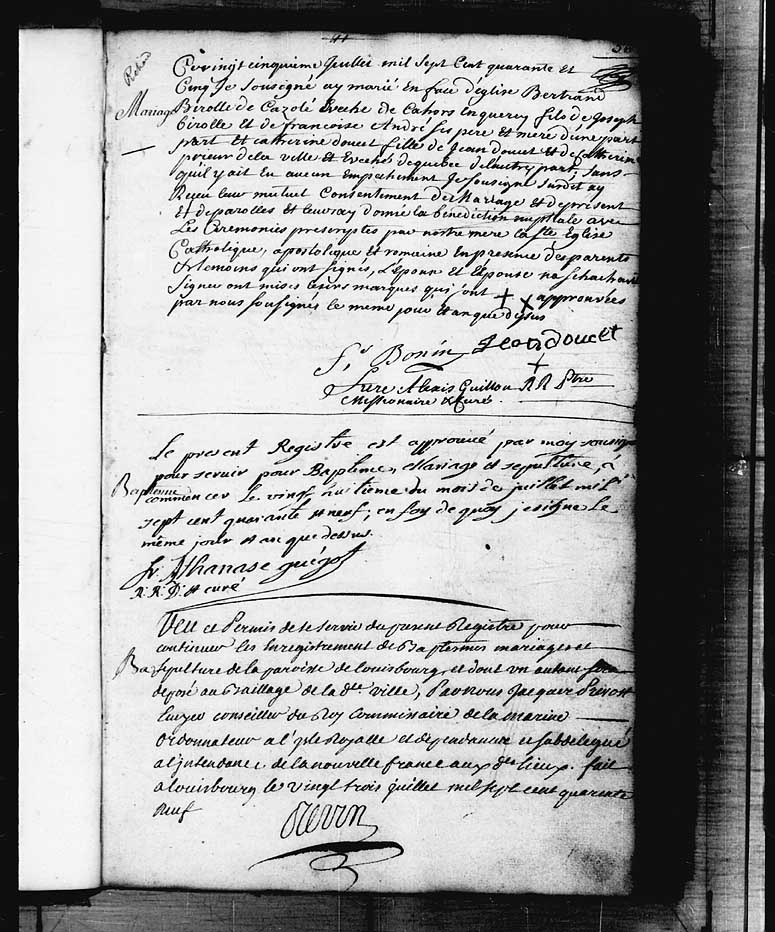 Ce vingt cinquieme Juillet mil sept Cent quarante Et
Cinq Je Sousigné ay marié En face d'église Bertrand
Mariage
Birolle de Cazolé Eveche de Cahors En querey fils de Joseph
birolle Et de francoise André ses pere Et mere d'une part
part Et catherine doucet fille de Jean doucet Et de Catherine
prieur de la ville et Eveché de quebec de l'autre part, sans
qu'il y ait Eu aucun Empechement Je sousigné susdit ay
Receu leur mutuel Consentement de Mariage et de present
Et de parolles Et leur ay donné la bénédiction nuptiale avec
Les Ceremonies prescriptes par nostre mere la Ste Eglise
Catholique, apostolique Et romaine En presence des parents
Et temoins qui ont signés, L'Epoux Et L'Epouse
Signer ont mises leurs marques qui sont + x approuvées
par nous sousignés le meme jour Et an que dessus
Bonin Jean doucet
+
frere Alexis Guillou RR Ptre
Missionnaire & Curé
Le present Registre est approuvé par moy soussigné
pour servir pour Baptême, Mariage et sepulture, a
Baptême
commencer le vingt huitieme du mois de juillet mil
sept cent quarante et neuf; en foy de quoy je signe le
même jour et an que dessus.
fr. Athanase guégot
R. R. P. et curé
Veu et Permis de se servir du present Registre pour
continuer les Enregistrement de Baptesmes mariages et
sepulture de la paroisse de louisbourg, et dont un autant sera
deposé au Bailliage de la dte ville, Par nous Jacques Prevost
Ecuyer conseiller du Roy Commissaire de la marine
ordonnateur a l'Isle Royalle et dependances et subdelegué
a l'Intendance de la nouvelle france aux dts lieux. fait
a louisbourg le vingt trois juillet mil sept cent quarente
neuf